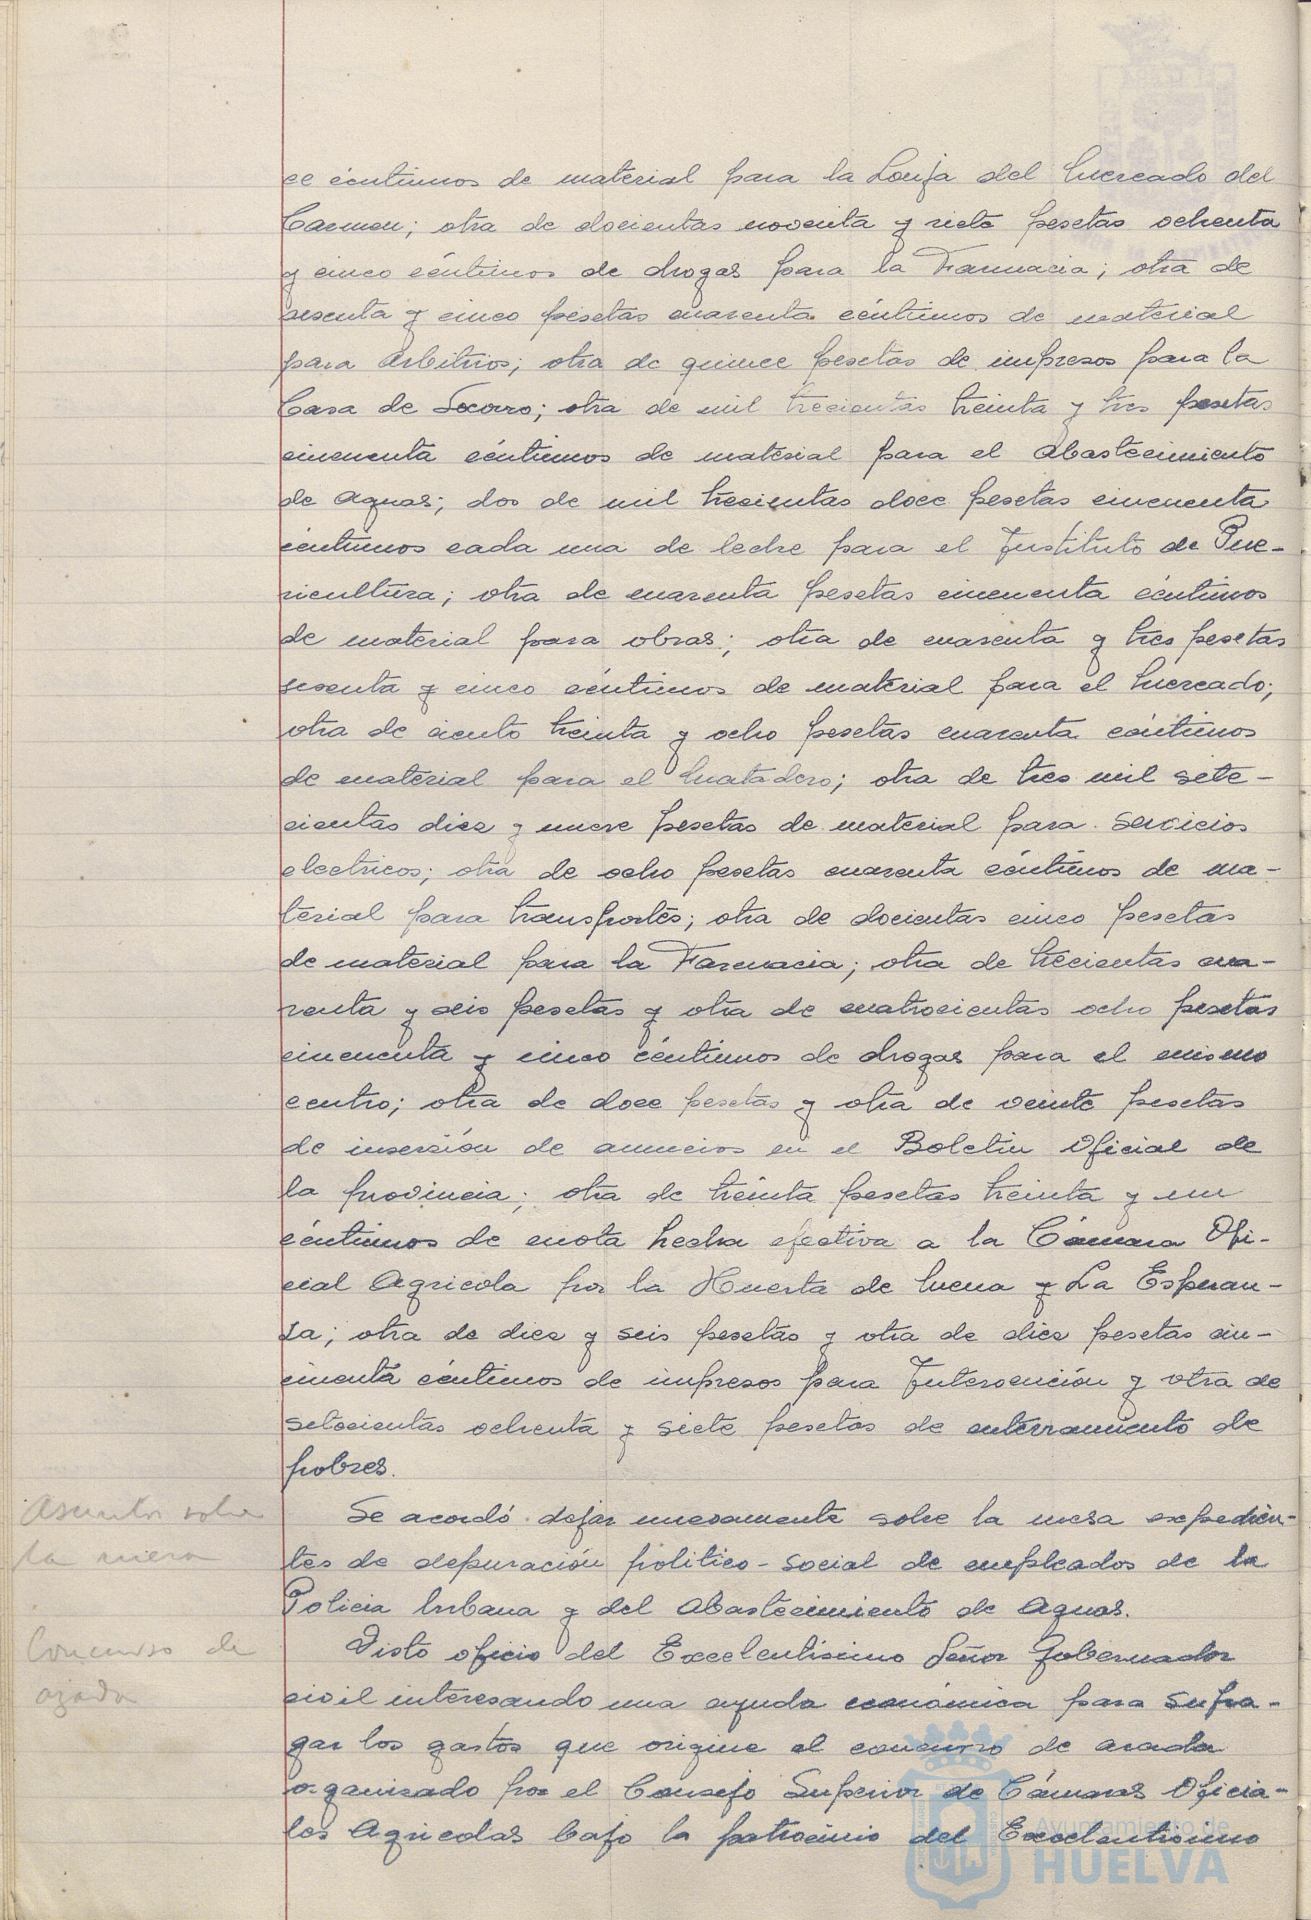 ce céntimos de material para la Lonja del Mercado del
Carmen; otra de docientas noventa y siete pesetas ochenta
y cinco céntimos de drogas para la Farmacia; otra de
sesenta y cinco pesetas cuarenta céntimos de material
para Arbitrios; otra de quince pesetas de impresos para la
Casa de Socorro; otra de mil trecientas treinta y tres pesetas
cincuenta céntimos de material para el Abastecimiento
de Aguas; dos de mil trecientas doce pesetas cincuenta
céntimos cada una de leche para el Instituto de Pue-
ricultura; otra de cuarenta pesetas cincuenta céntimos
de material para obras; otra de cuarenta y tres pesetas
sesenta y cinco céntimos de material para el Mercado;
otra de ciento treinta y ocho pesetas cuarenta céntimos
de material para el Matadero; otra de tres mil sete-
cientas diez y nueve pesetas de material para servicios
electricos; otra de ocho pesetas cuarenta céntimos de ma-
terial para transportes; otra de docientas cinco pesetas
de material para la Farmacia; otra de trecientas cua-
renta y seis pesetas y otra de cuatrocientas ocho pesetas
cincuenta y cinco céntimos de drogas para el mismo
centro; otra de doce pesetas y otra de veinte pesetas
de inserción de anuncios en el Boletin Oficial de
la provincia; otra de treinta pesetas treinta y un
céntimos de cuota hecha efectiva a la Cámara Ofi-
cial Agricola por la Huerta de Mena y La Esperan-
za; otra de diez y seis pesetas y otra de diez pesetas cin-
cuenta céntimos de impresos para Intervención y otra de
setecientas ochenta y siete pesetas de enterramiento de
pobres.
Asuntos sobre
la mesa
Se acordó dejar nuevamente sobre la mesa expedien-
tes de depuración politico-social de empleados de la
Policia Urbana y del Abastecimiento de Aguas.
Concurso de
azada
Visto oficio del Excelentisimo Señor Gobernador
civil interesando una ayuda económica para sufra-
gar los gastos que origine el concurso de arada
organizado por el Consejo Superior de Cámaras Oficia-
les Agricolas bajo la patrocinio del Excelentisimo
Ayuntamiento de
HUELVA